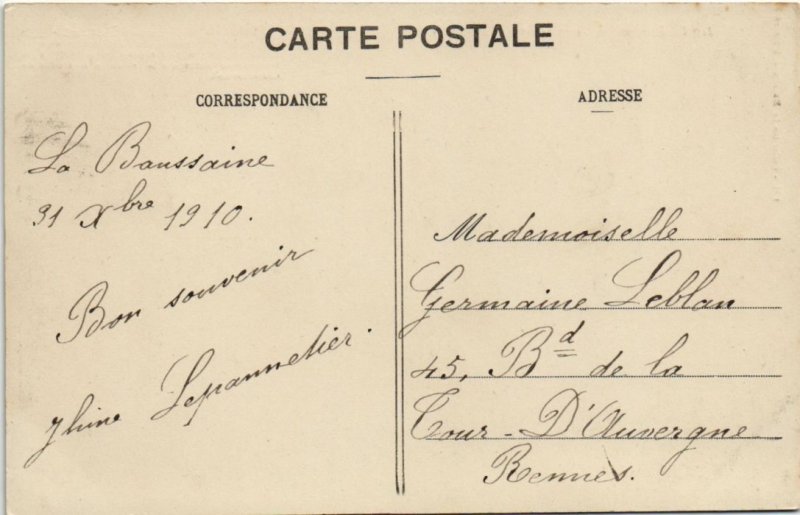 CARTE POSTALE
CORRESPONDANCE
La Baussaine
31 Xbre 1910.
Bon souvenir
Lepannetier.
ADRESSE
Mademoiselle
Germaine Leblan
45, Bd de la
Tour-D'Auvergne
Rennes.